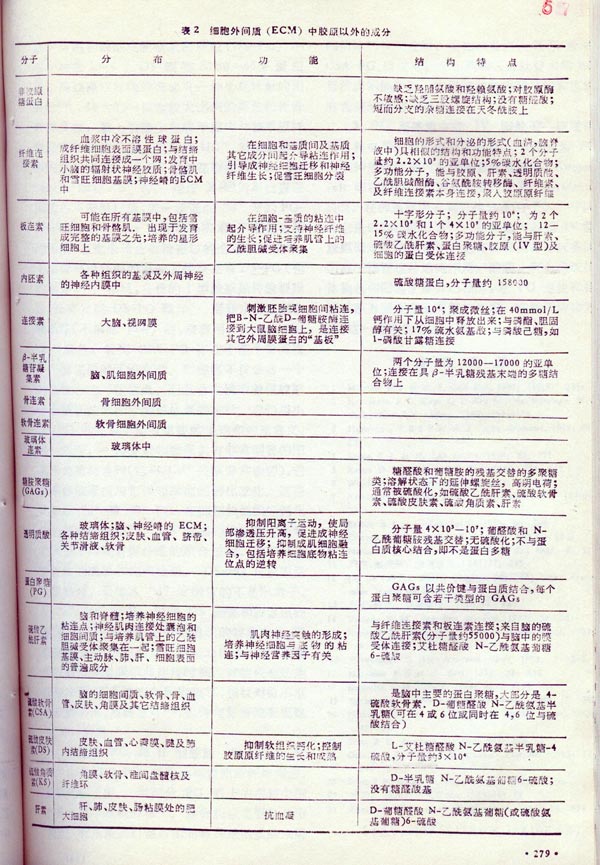 表 2 细胞外间质 (ECM) 中胶原以外的成分
分子
分布
功能
结构特点
非胶原
糖蛋白
缺乏羟脯氨酸和羟赖氨酸;对胶原酶
不敏感;缺乏三股螺旋结构;没有糖醛酸;
短而分支的杂糖连接在天冬酰胺上
纤维连
接素
血浆中冷不溶性球蛋白;
成纤维细胞表面膜蛋白;与结缔
组织共同连接成一个网;发育中
小脑的辐射状神经胶质;骨骼肌
和雪旺细胞基膜;神经嵴的ECM
中
在细胞和基质间及基质
其它成分间起介导粘连作用;
引导成神经细胞迁移和神经
纤维生长;促雪旺细胞分裂
细胞的形式和分泌的形式(血清,脑脊
液中)具相似的结构和功能特点; 2个分子
量约2.2×10⁵的亚单位;5%碳水化合物;
多功能分子,能与胶原、肝素、透明质酸、
乙酰胆碱酯酶、谷氨酰胺转移酶、纤维素、
及纤维连接素本身连接,聚入胶原原纤维
板连素
可能在所有基膜中,包括雪
旺细胞和骨骼肌. 出现于发育
成完整的基膜之先;培养的星形
细胞上
在细胞-基质的粘连中
起介导作用;支持神经纤维
的生长;促进培养肌管上的
乙酰胆碱受体聚集
十字形分子; 分子量约10⁶; 为2个
2.2×10⁵和1个4×10⁵的亚单位; 12—
15%碳水化合物;多功能分子,能与肝素、
硫酸乙酰肝素、蛋白聚糖、胶原(IV型)及
细胞的蛋白受体连接
内胚素
各种组织的基膜及外周神经
的神经内膜中
硫酸糖蛋白,分子量约 158000
连接素
大脑、视网膜
刺激胚胎视细胞间粘连,
把B-N-乙酰D-葡糖胺酶连
接到大鼠脑细胞上,是连接
其它外周膜蛋白的“基板”
分子量10⁴;聚成微丝;在40mmol/L
钙作用下从细胞中释放出来;与磷酯、胆固
醇有关;17%疏水氨基酸;与磷酸己糖,如
1-磷酸甘露糖连接
β-半乳
糖苷凝
集素
脑、肌细胞外间质
两个分子量为12000—17000的亚单
位;连接在具β-半乳糖残基末端的多糖结
合物上
骨连素
骨细胞外间质
软骨连素
软骨细胞外间质
玻璃体
连素
玻璃体中
糖胺聚糖
(GAGs)
糖醛酸和葡糖胺的残基交替的多聚糖
类;溶解状态下的延伸螺旋丝,高阴电荷;
通常被硫酸化,如硫酸乙酰肝素、硫酸软骨
素、硫酸皮肤素、硫酸角质素、肝素
透明质酸
玻璃体;脑、神经嵴的 ECM;
各种结缔组织;皮肤、血管、脐带、
关节滑液、软骨
抑制阳离子运动,使局
部渗透压升高,促进成神经
细胞迁移; 抑制成肌细胞融
合,包括培养细胞底物粘连
位点的逆转
分子量4×10³—10⁷;葡醛酸和 N-
乙酰葡糖胺残基交替;无硫酸化;不与蛋
白质核心结合,即不是蛋白多糖
蛋白聚糖
(PG)
GAGs 以共价键与蛋白质结合,每个
蛋白聚糖可含若干类型的 GAGs
硫酸乙
酰肝素
脑和脊髓;培养神经细胞的
粘连点;神经肌肉连接处囊泡和
细胞间质;与培养肌管上的乙酰
胆碱受体聚集在一起;雪旺细胞
基膜、主动脉、肺、肝、细胞表面
的普遍成分
肌肉神经突触的形成;
培养神经细胞与底物的粘
连;与神经营养因子有关
与纤维连接素和板连素连接;来自脑的硫
酸乙酰肝素(分子量约55000)与脑中的膜
受体连接;艾杜糖醛酸 N-乙酰氨基葡糖
6-硫酸
硫酸软骨
素(CSA)
脑的细胞间质、软骨、骨、血
管、皮肤、角膜及其它结缔组织
是脑中主要的蛋白聚糖,大部分是 4-
硫酸软骨素. D-葡糖醛酸 N-乙酰氨基半
乳糖(可在 4 或 6 位或同时在 4,6 位与硫
酸结合)
硫酸皮肤
素(DS)
皮肤、血管、心瓣膜、腱及肺
内结缔组织
抑制软组织钙化;控制
胶原原纤维的生长和成熟
L-艾杜糖醛酸 N-乙酰氨基半乳糖-4
硫酸,分子量约3×10⁴
硫酸角质
素(KS)
角膜、软骨、椎间盘髓核及
纤维环
D-半乳糖 N-乙酰氨基葡糖6-硫酸;
没有糖醛酸基
肝素
肝、肺、皮肤、肠粘膜处的肥
大细胞
抗血凝
D-葡糖醛酸 N-乙酰氨基葡糖(或硫酸氨
基葡糖)6-硫酸
·279·